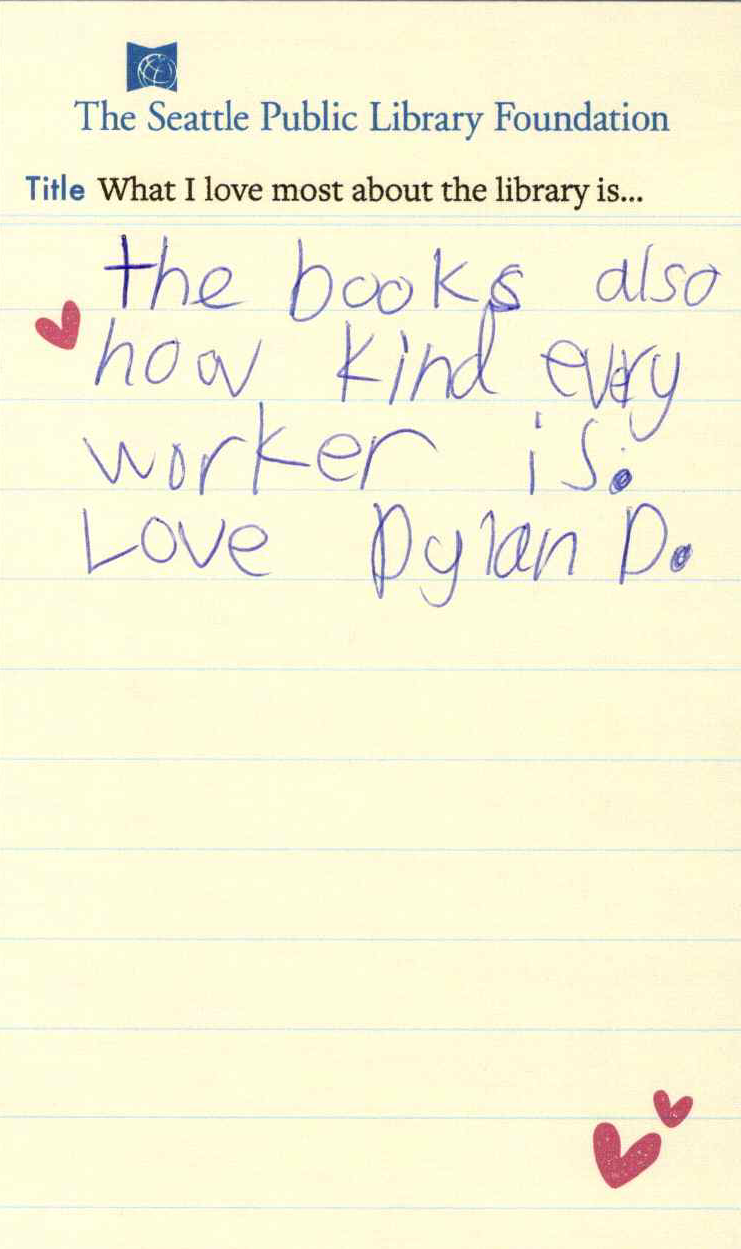 The Seattle Public Library Foundation
Title What I love most about the library is...
the books also
how kind every
worker is.
Love Dylan D.